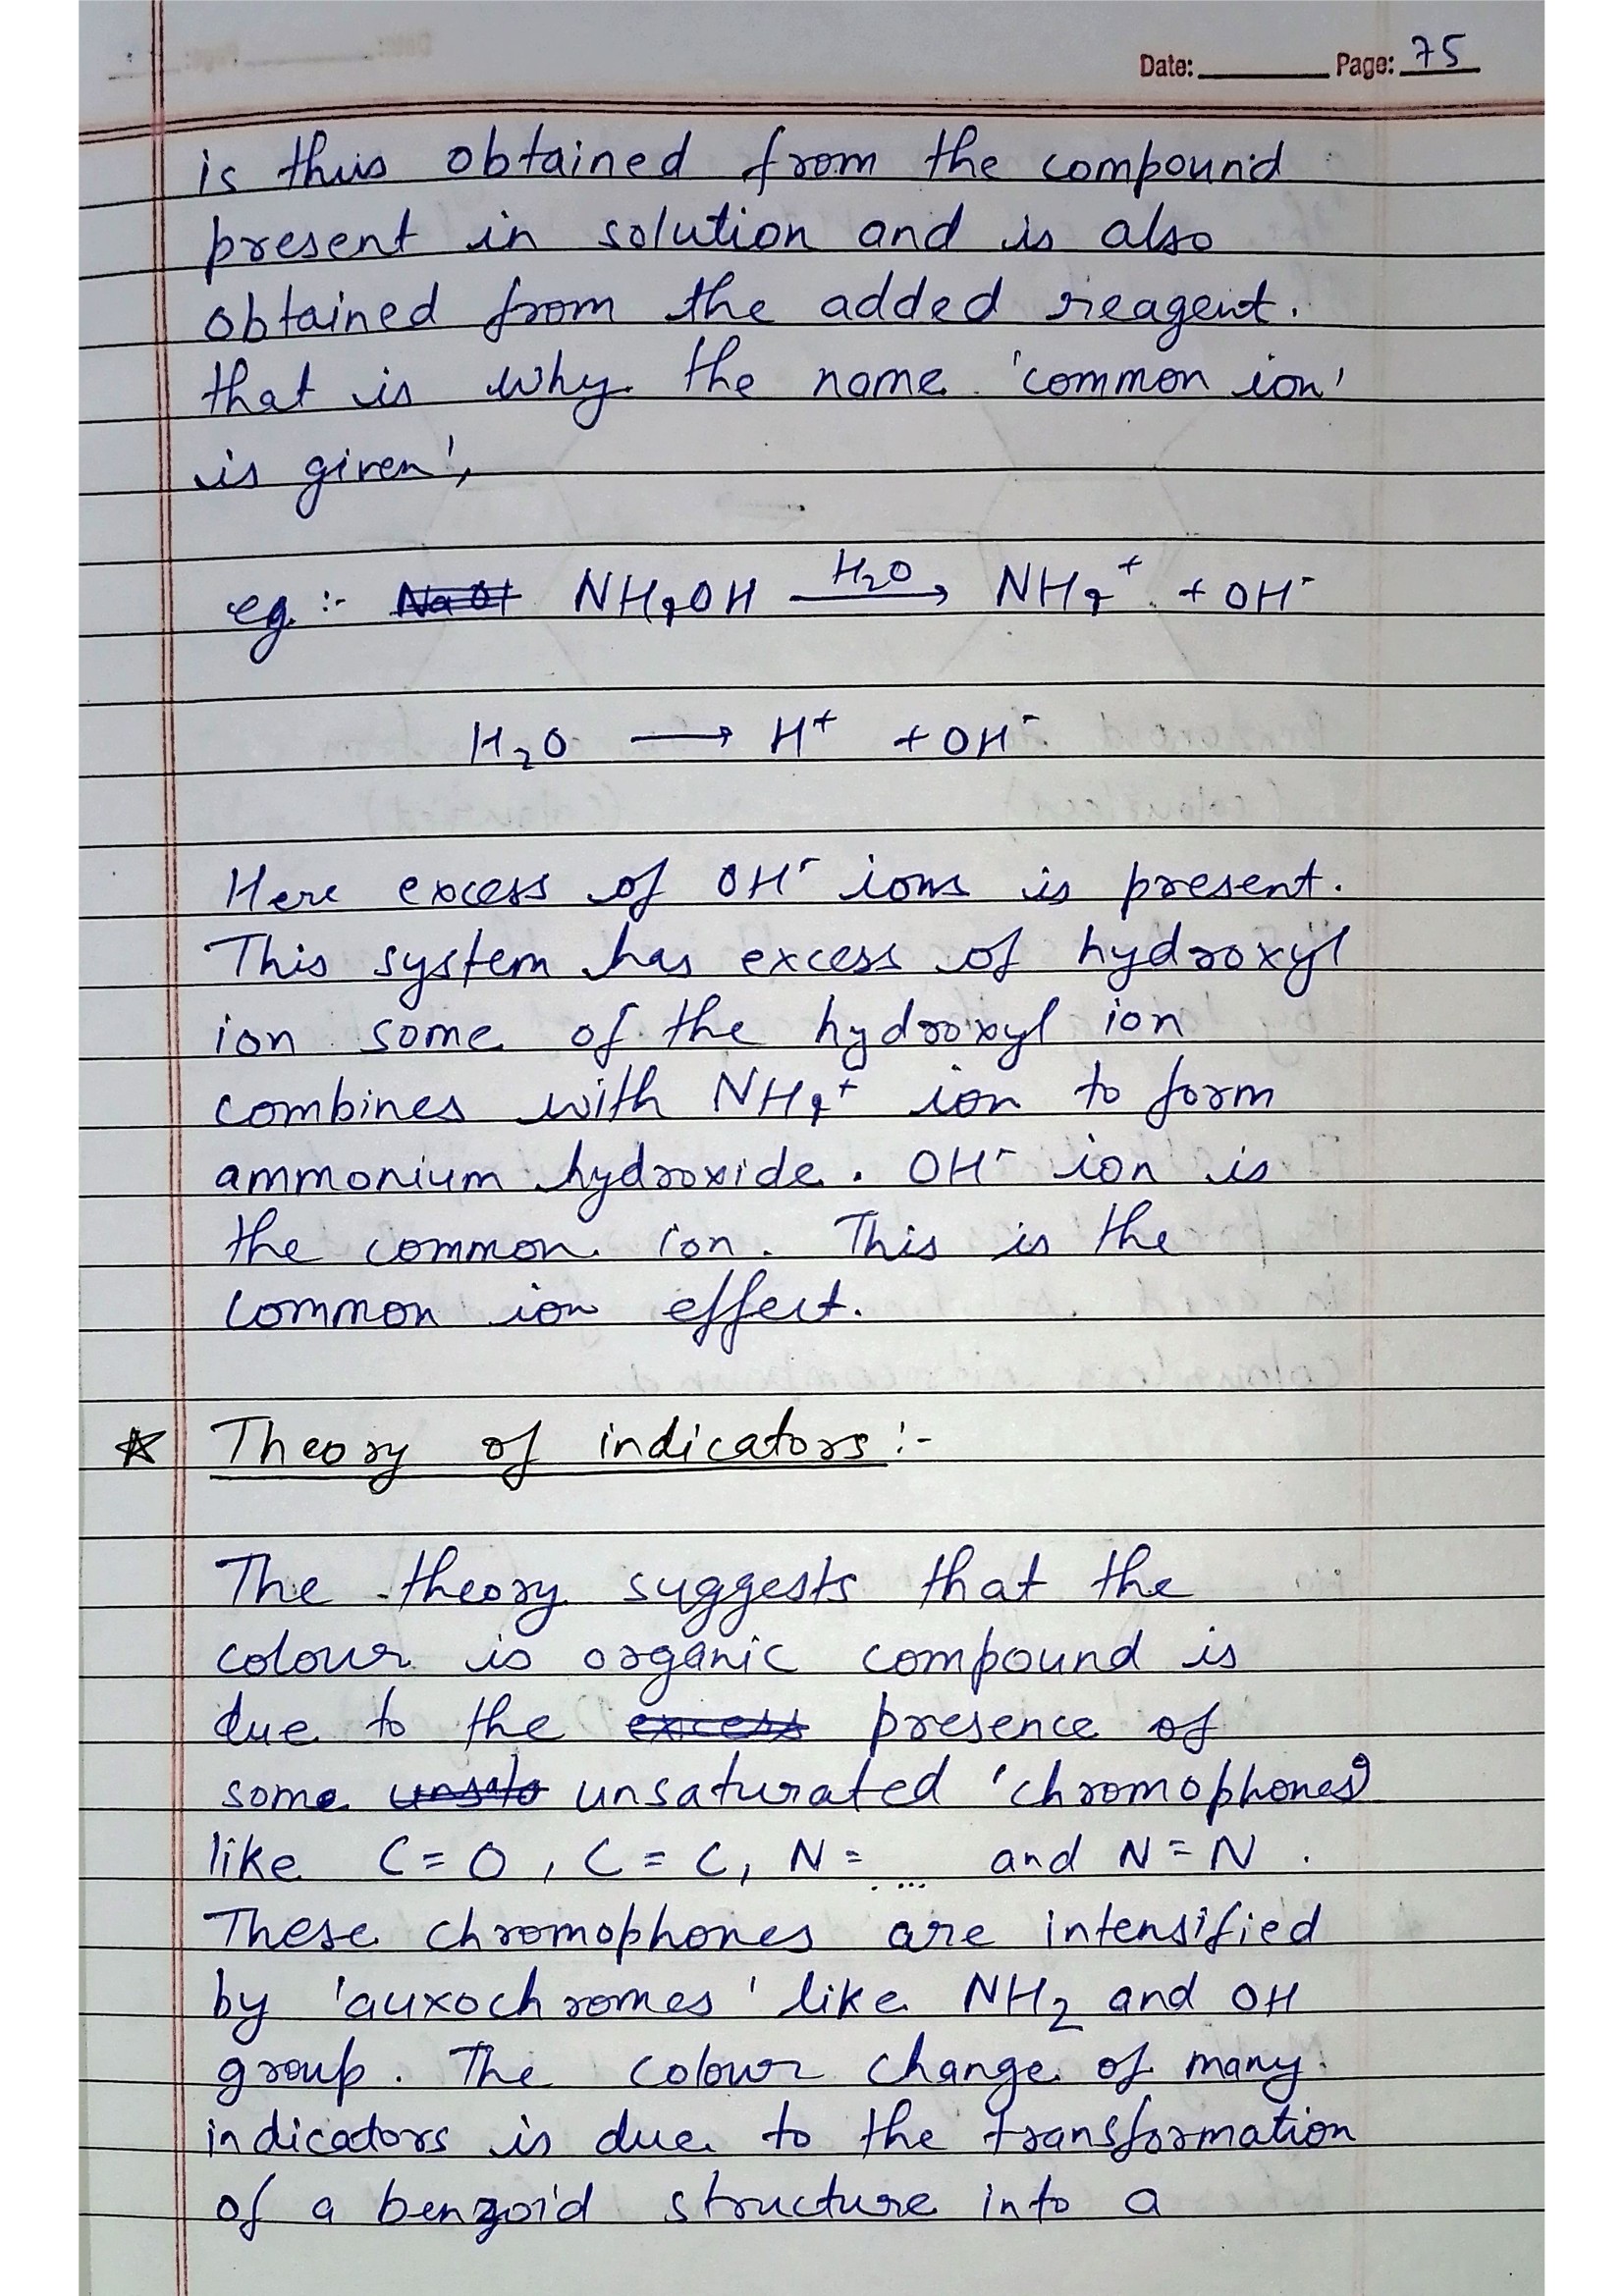 Date: Page: 75
is thus obtained from the compound
present in solution and is also
obtained from the added reagent.
that is why the name 'common ion'
is given',
eg. :- NH₄OH H₂O → NH₄⁺ + OH⁻
H₂O → H⁺ + OH⁻
Here excess of OH⁻ ions is present.
This system has excess of hydroxyl
ion some of the hydroxyl ion
combines with NH₄⁺ ion to form
ammonium hydroxide. OH⁻ ion is
the common ion. This is the
common ion effect.
☆ Theory of indicators :-
The theory suggests that the
colour is organic compound is
due to the excess presence of
some unsaturated 'chromophones'
like C=O, C=C, N=... and N=N.
These chromophones are intensified
by 'auxochromes' like NH₂ and OH
group. The colour change of many
indicators is due to the transformation
of a benzoid structure into a